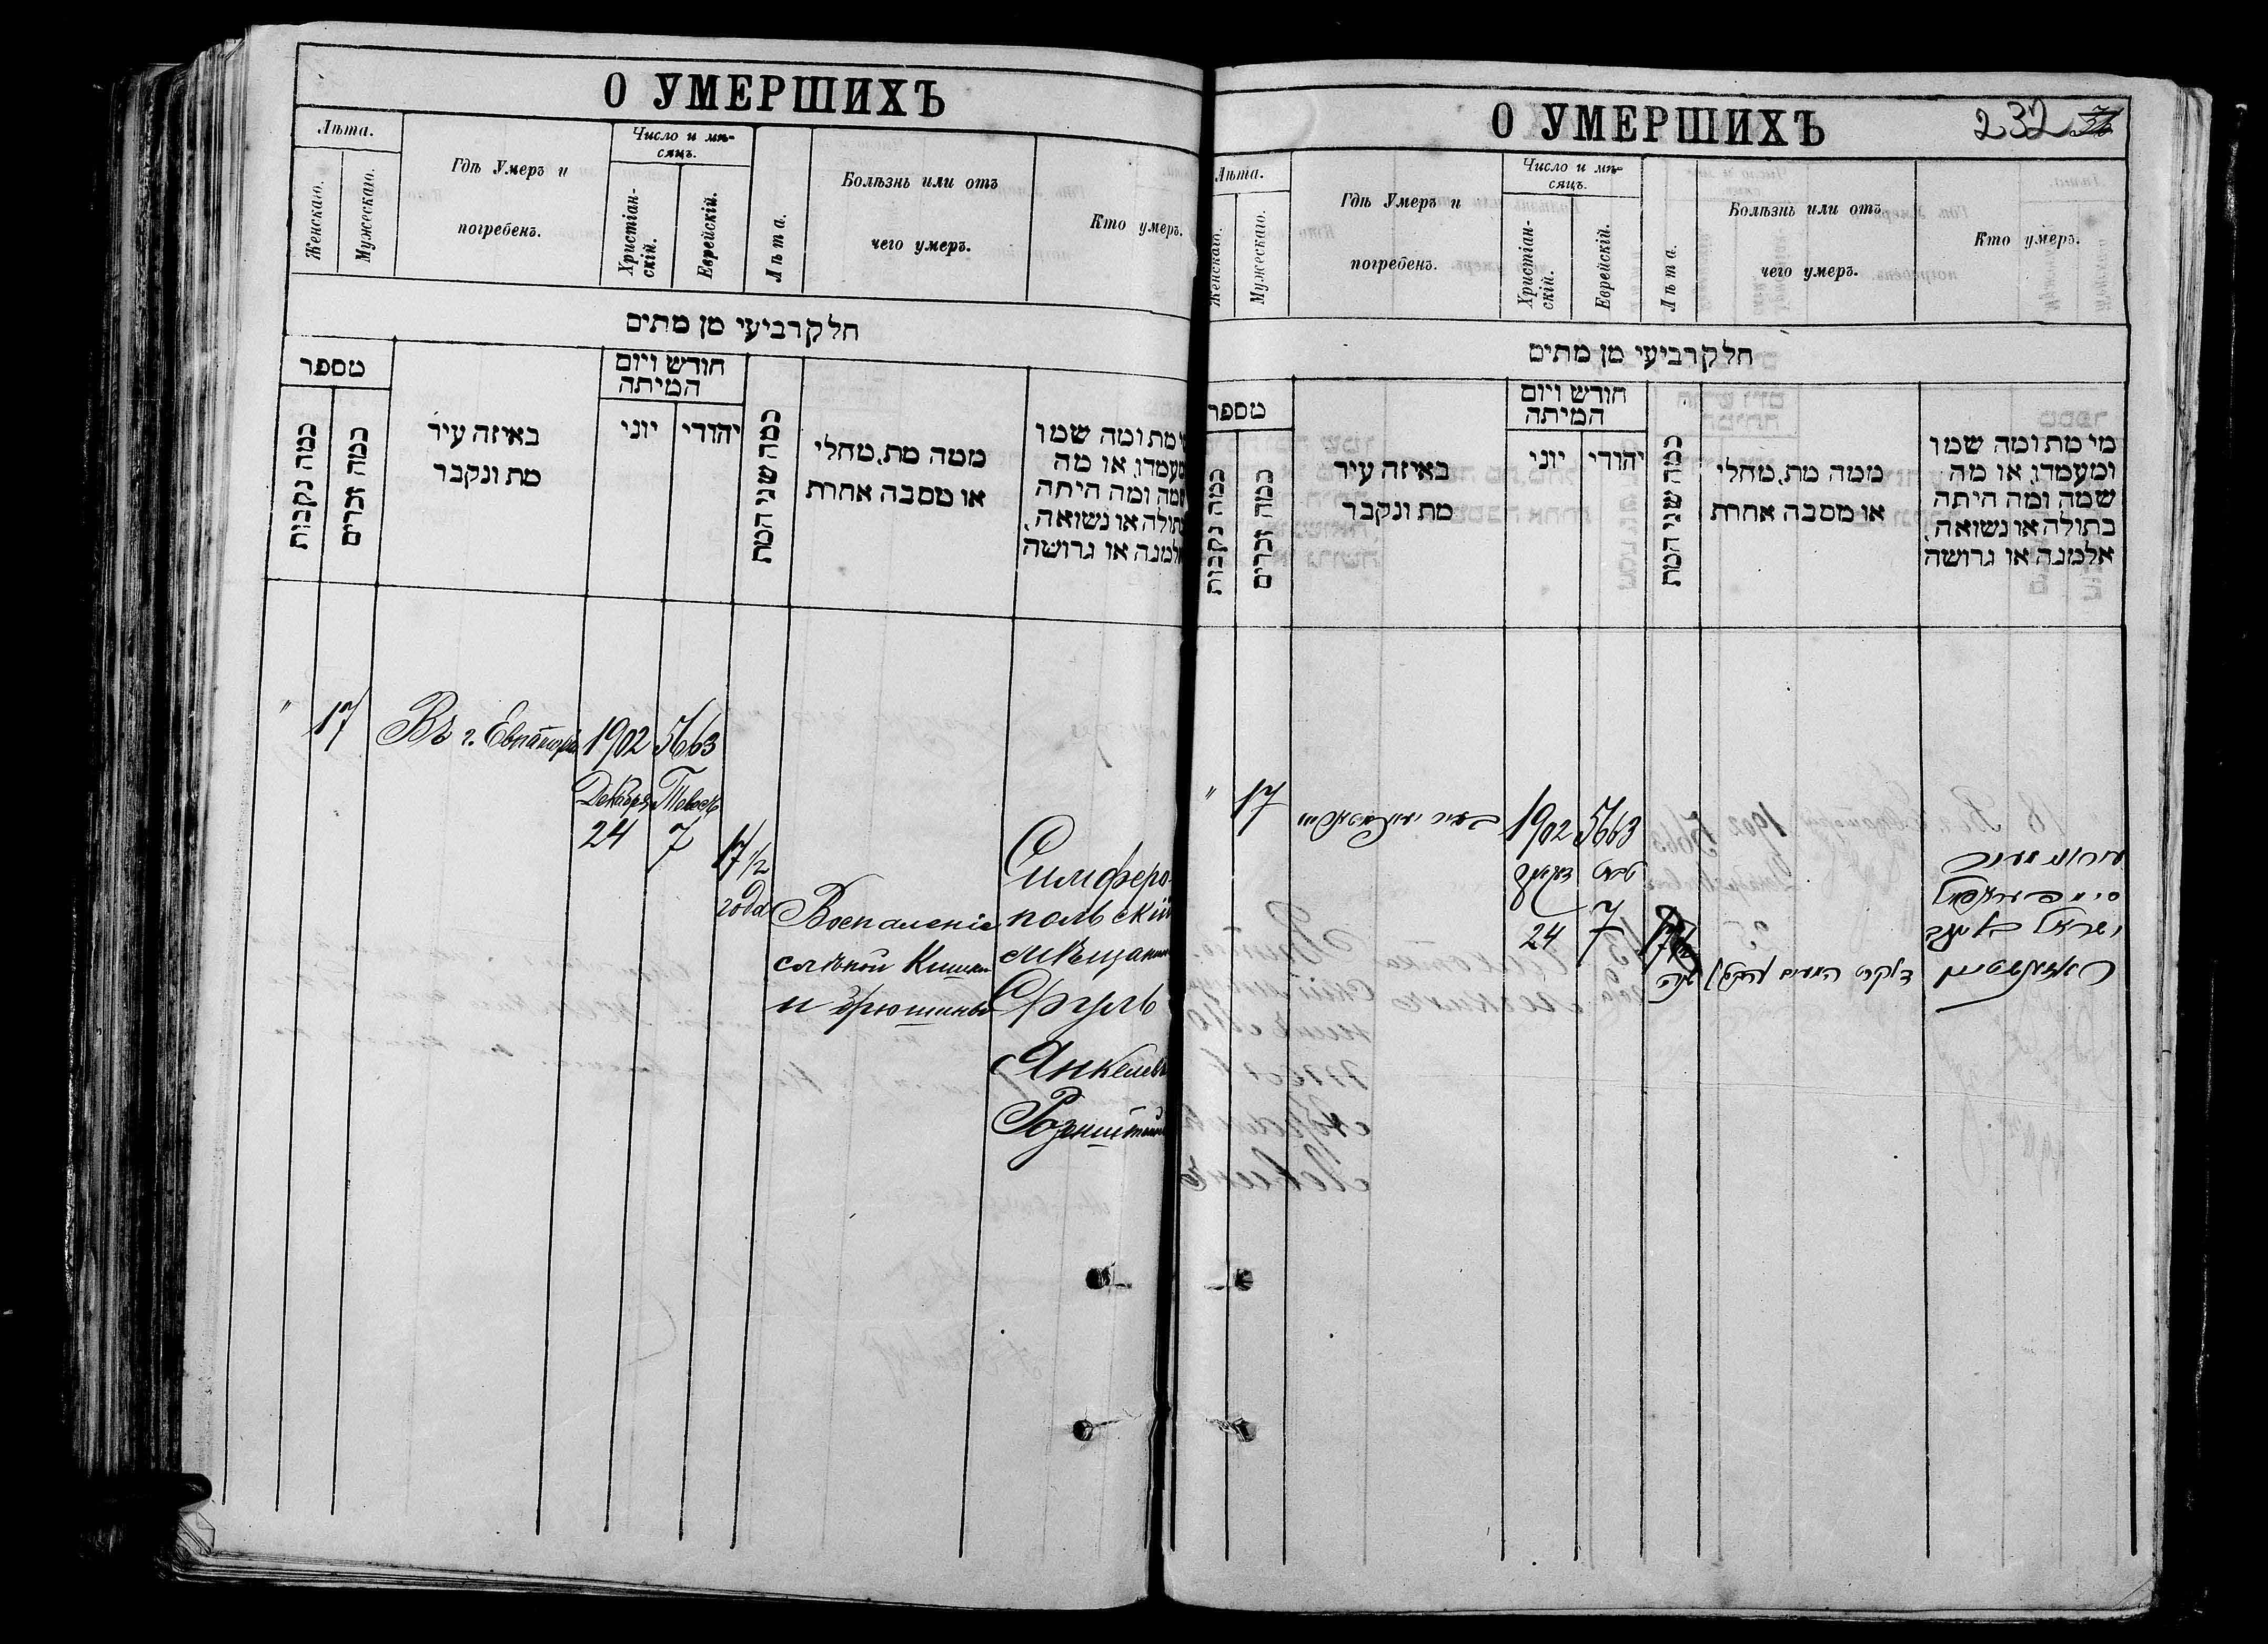 О УМЕРШИХЪ
Лѣта.
Женскаго.
Мужескаго.
Гдѣ Умеръ и
погребенъ.
Число и мѣ-
сяцъ.
Христіан-
скій.
Еврейскій.
Лѣта.
Болѣзнь или отъ
чего умеръ.
Кто умеръ.
חלק רביעי מן מתים
מספר
כמה נקבות
כמה זכרים
באיזה עיר
מת ונקבר
חודש ויום
המיתה
יוני
יהודי
כמה שני המת
ממה מת, מחלי
או מסבה אחרת
מת ומה שמו
או מה
ומה היתה
או נשואה,
או גרושה
" 17 Въ г. 1902 5663
Декабря Тевесъ
24 7
17 1/2
года
Воспаленіе
слѣпой Кишки
и брюшины
Симферо-
польскій
мѣщанинъ
Сруль
Янкелевъ
Розенштейнъ
О УМЕРШИХЪ
232
Лѣта.
Женскаго.
Мужескаго.
Гдѣ Умеръ и
погребенъ.
Число и мѣ-
сяцъ.
Христіан-
скій.
Еврейскій.
Лѣта.
Болѣзнь или отъ
чего умеръ.
Кто умеръ.
חלק רביעי מן מתים
מספר
כמה נקבות
כמה זכרים
באיזה עיר
מת ונקבר
חודש ויום
המיתה
יוני
יהודי
כמה שני המת
ממה מת, מחלי
או מסבה אחרת
מי מת ומה שמו
ומעמדו, או מה
שמה ומה היתה
בתולה או נשואה,
אלמנה או גרושה
" 17 בעיר 1902 5663
טבת
24 7
ישראל בן יענקל
ראזענשטיין